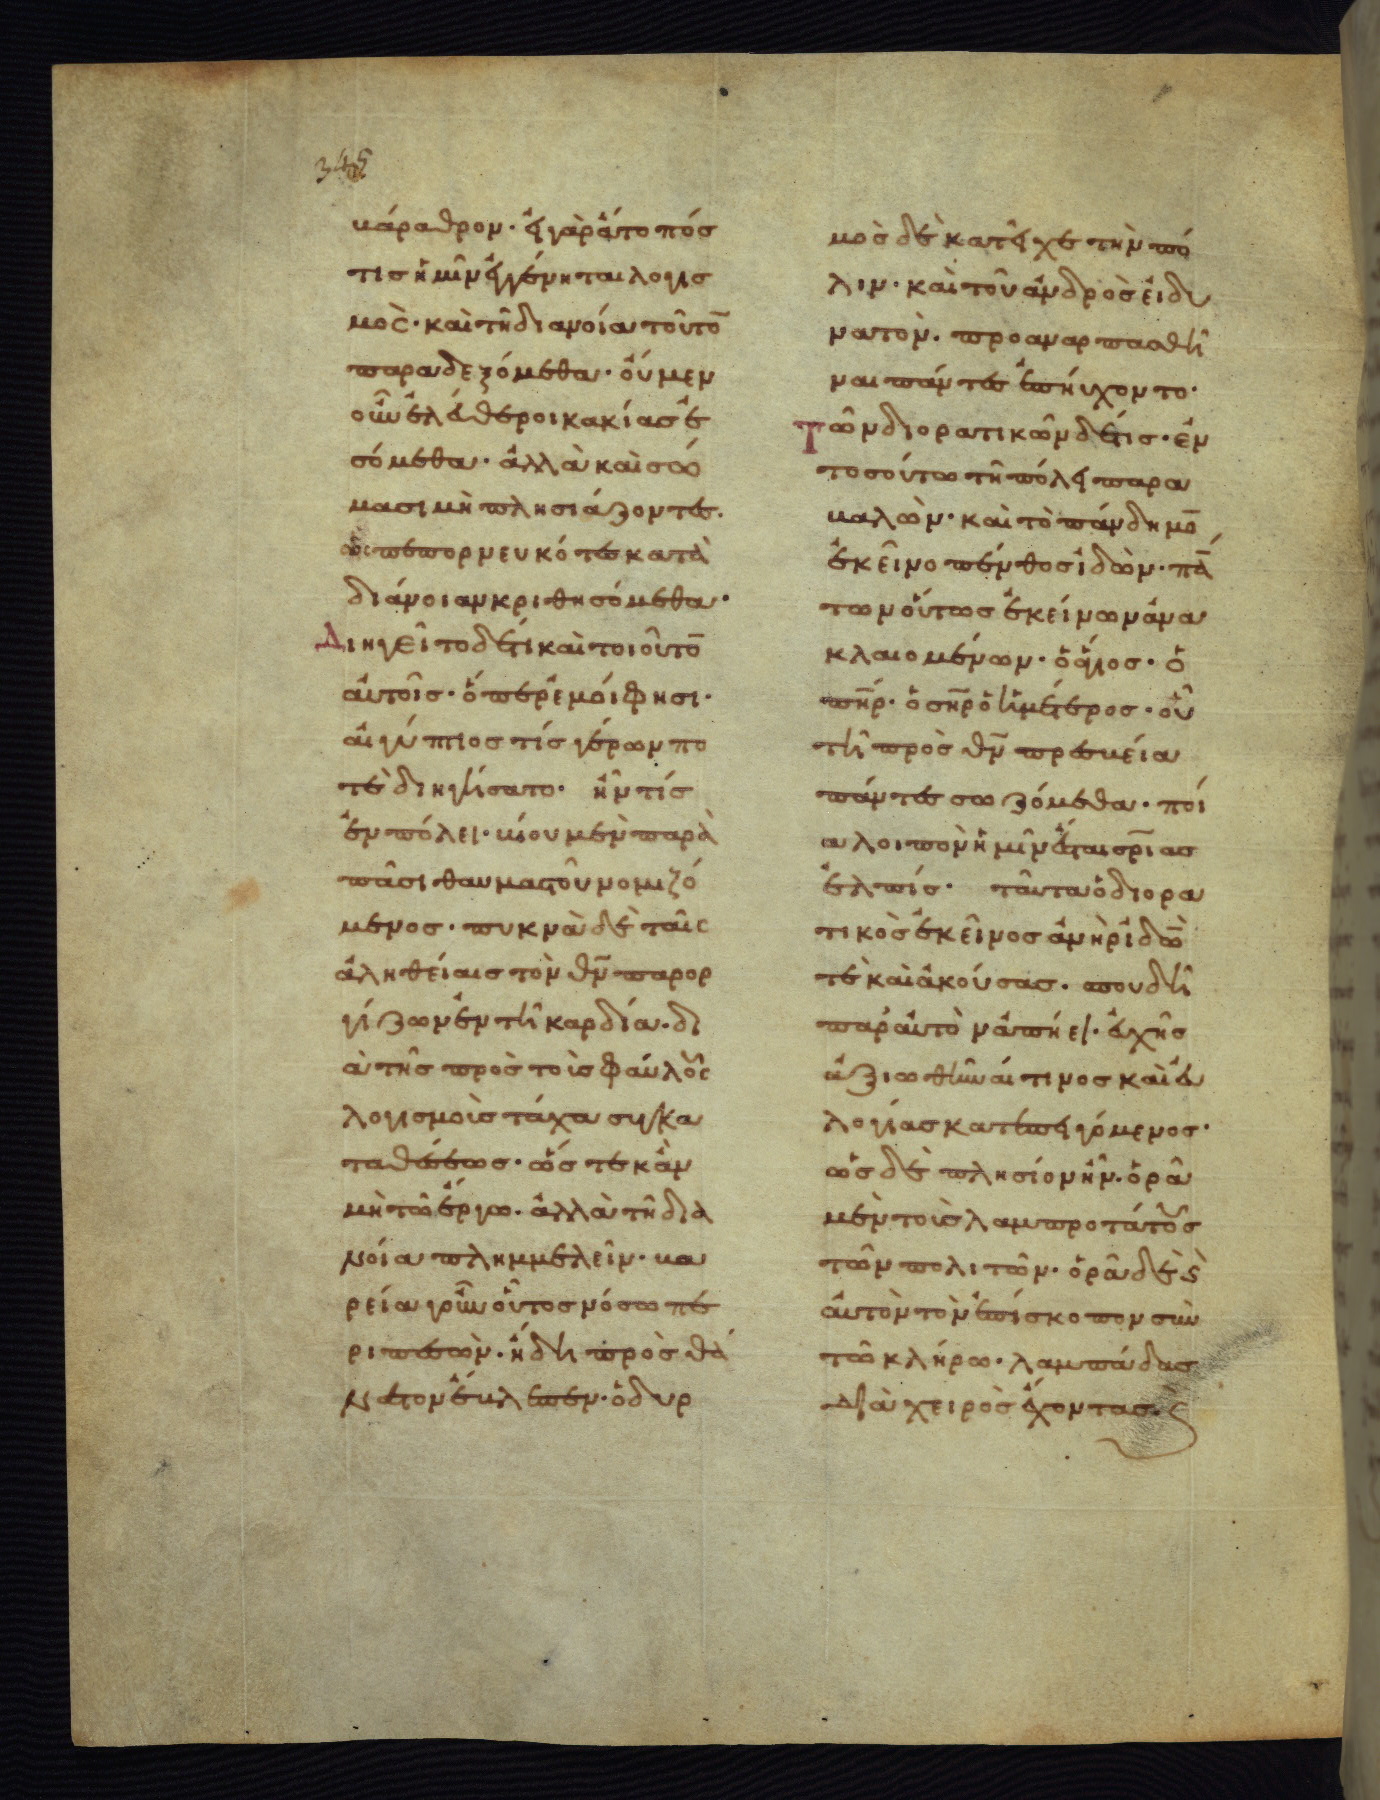 345
κάραθρον· εἰ γὰρ ἄτοπός
τις ἡμῖν ἐγγένηται λογισ
μὸς· καὶ τῆ διανοία τοῦτο̅
παραδεξόμεθα· οὐ μεν
οῦν ἐλεύθεροι κακίας ἐ
σόμεθα· ἀλλὰ καὶ σώ
μασι μὴ πλησιάζοντες.
ὡς πεπορνευκότες κατὰ
διάνοιαν κριθησόμεθα·
Διηγεῖτο δέ τι καὶ τοιοῦτο̅
αὐτοῖς· ὅπερ ἐμοί φησι·
αἰγύπτιος τίς γέρων πο
τὲ διηγήσατο· ἦν τίς
ἐν πόλει· κίου μὲν παρὰ
πᾶσι θαυμαστοῦ νομιζό
μενος· πυκνὰ δὲ ταῖς
ἀληθείαις τὸν θν̅ παρορ
γίζων ἐν τῆ καρδία· δι
ὰ τῆς πρὸς τοὺς φαύλους
λογισμοὺς τάχα συγκα
ταθέσεως· ὥς τε κἂν
μὴ τῶ ἔργω· ἀλλὰ τῆ δια
νοία πλημμελεῖν· κα
ρεία γοῦν οὗτος νόσω πε
ριπεσὼν· ἤδη πρὸς θά
νατον ἔκλεπεν· ὀδυρ
μὸς δὲ κατεῖχε τὴν πό
λιν· καὶ τοῦ ἀνδρὸς εἰ δυ
νατὸν· προαναρπασθῆ
ναι πάντες ἐπηύχοντο·
Τῶν διορατικῶν δέ τις· ἐν
τοσούτω τῆ πόλει παρα
καλὼν· καὶ τὸ πάνδημο̅
ἐκεῖνο πένθος ἰδὼν· πά̅
των οὕτως ἐκείνων ἀνα
κλαιομένων· ὁ ἅγιος· ὁ
πη̅ρ· ὁ ση̅ρ ὁ ἡμέτερος· οὗ
τῆ πρὸς θν̅ πρεσβεία
πάντες σωζόμεθα· ποί
α λοιπὸν ἡμῖν ἔσται σρ̅ιας
ἐλπίς· ταῦτα ὁ διορα
τικὸς ἐκεῖνος ἀνὴρ ἰδώ̅
τὲ καὶ ἀκούσας· σπουδῆ
παρ' αὐτὸν ἀπήει· εὐχῆς
ἀξιωθῆναί τινος καὶ εὐ
λογίας κατεπειγόμενος·
ὡς δὲ πλησίον ἦν· ὁρᾶ
μὲν τοὺς λαμπροτάτους
τῶν πολιτῶν· ὁρᾶ δὲ ϗ̀
αὐτὸν τὸν ἐπίσκοπον σὺν
τῶ κλήρω· λαμπάδας
διὰ χειρὸς ἔχοντας·